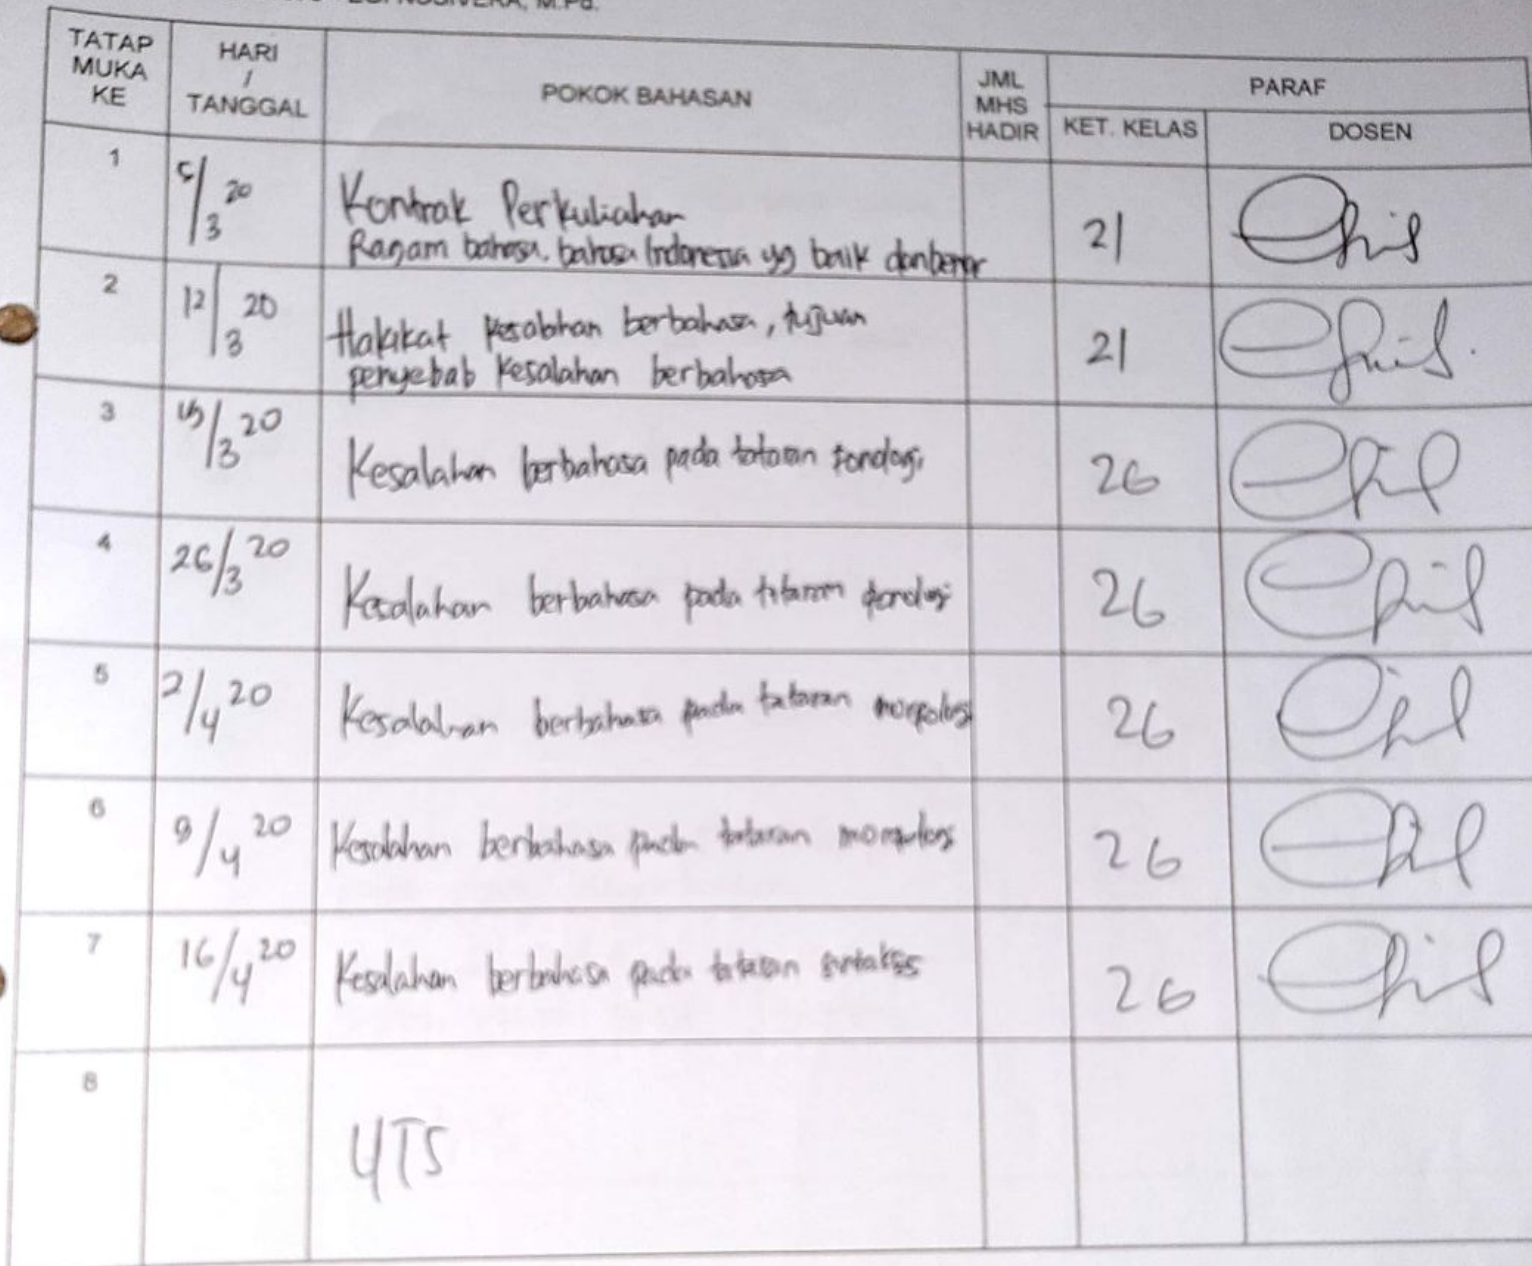 TATAP MUKA KE
HARI / TANGGAL
POKOK BAHASAN
JML MHS HADIR
PARAF
KET. KELAS
DOSEN
1
5/3 20
Kontrak Perkuliahan
Ragam bahasa, bahasa Indonesia yg baik dan benar
21
2
12/3 20
Hakikat kesalahan berbahasa, tujuan
penyebab kesalahan berbahasa
21
3
/3 20
Kesalahan berbahasa pada tataran fonologi
26
4
26/3 20
Kesalahan berbahasa pada tataran fonologi
26
5
2/4 20
Kesalahan berbahasa pada tataran morfologi
26
6
9/4 20
Kesalahan berbahasa pada tataran morfologi
26
7
16/4 20
Kesalahan berbahasa pada tataran sintaksis
26
8
UTS